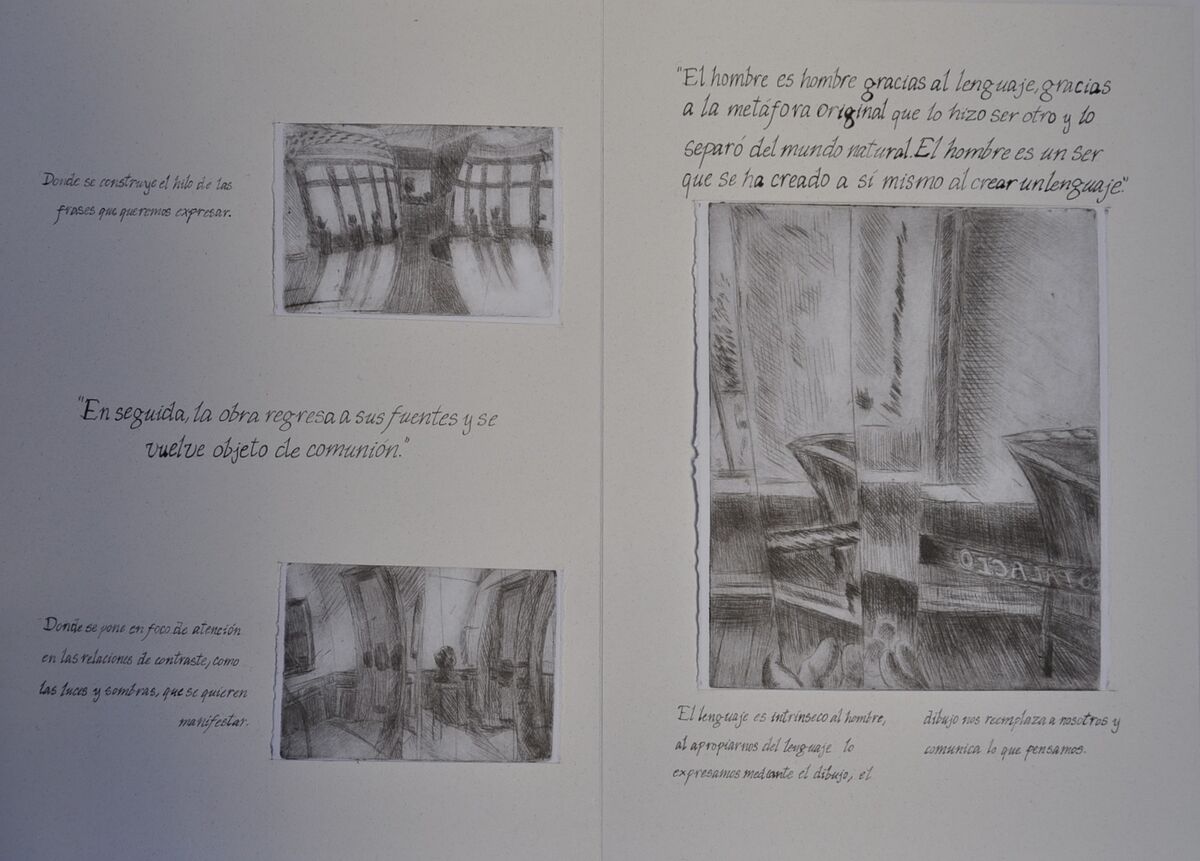 Donde se construye el hilo de las
frases que queremos expresar.
"En seguida, la obra regresa a sus fuentes y se
vuelve objeto de comunión."
Donde se pone en foco de atención
en las relaciones de contraste, como
las luces y sombras, que se quieren
manifestar.
"El hombre es hombre gracias al lenguaje, gracias
a la metáfora original que lo hizo ser otro y lo
separó del mundo natural. El hombre es un ser
que se ha creado a sí mismo al crear un lenguaje."
PALACIO
El lenguaje es intrínseco al hombre,
al apropiarnos del lenguaje lo
expresamos mediante el dibujo, el
dibujo nos reemplaza a nosotros y
comunica lo que pensamos.